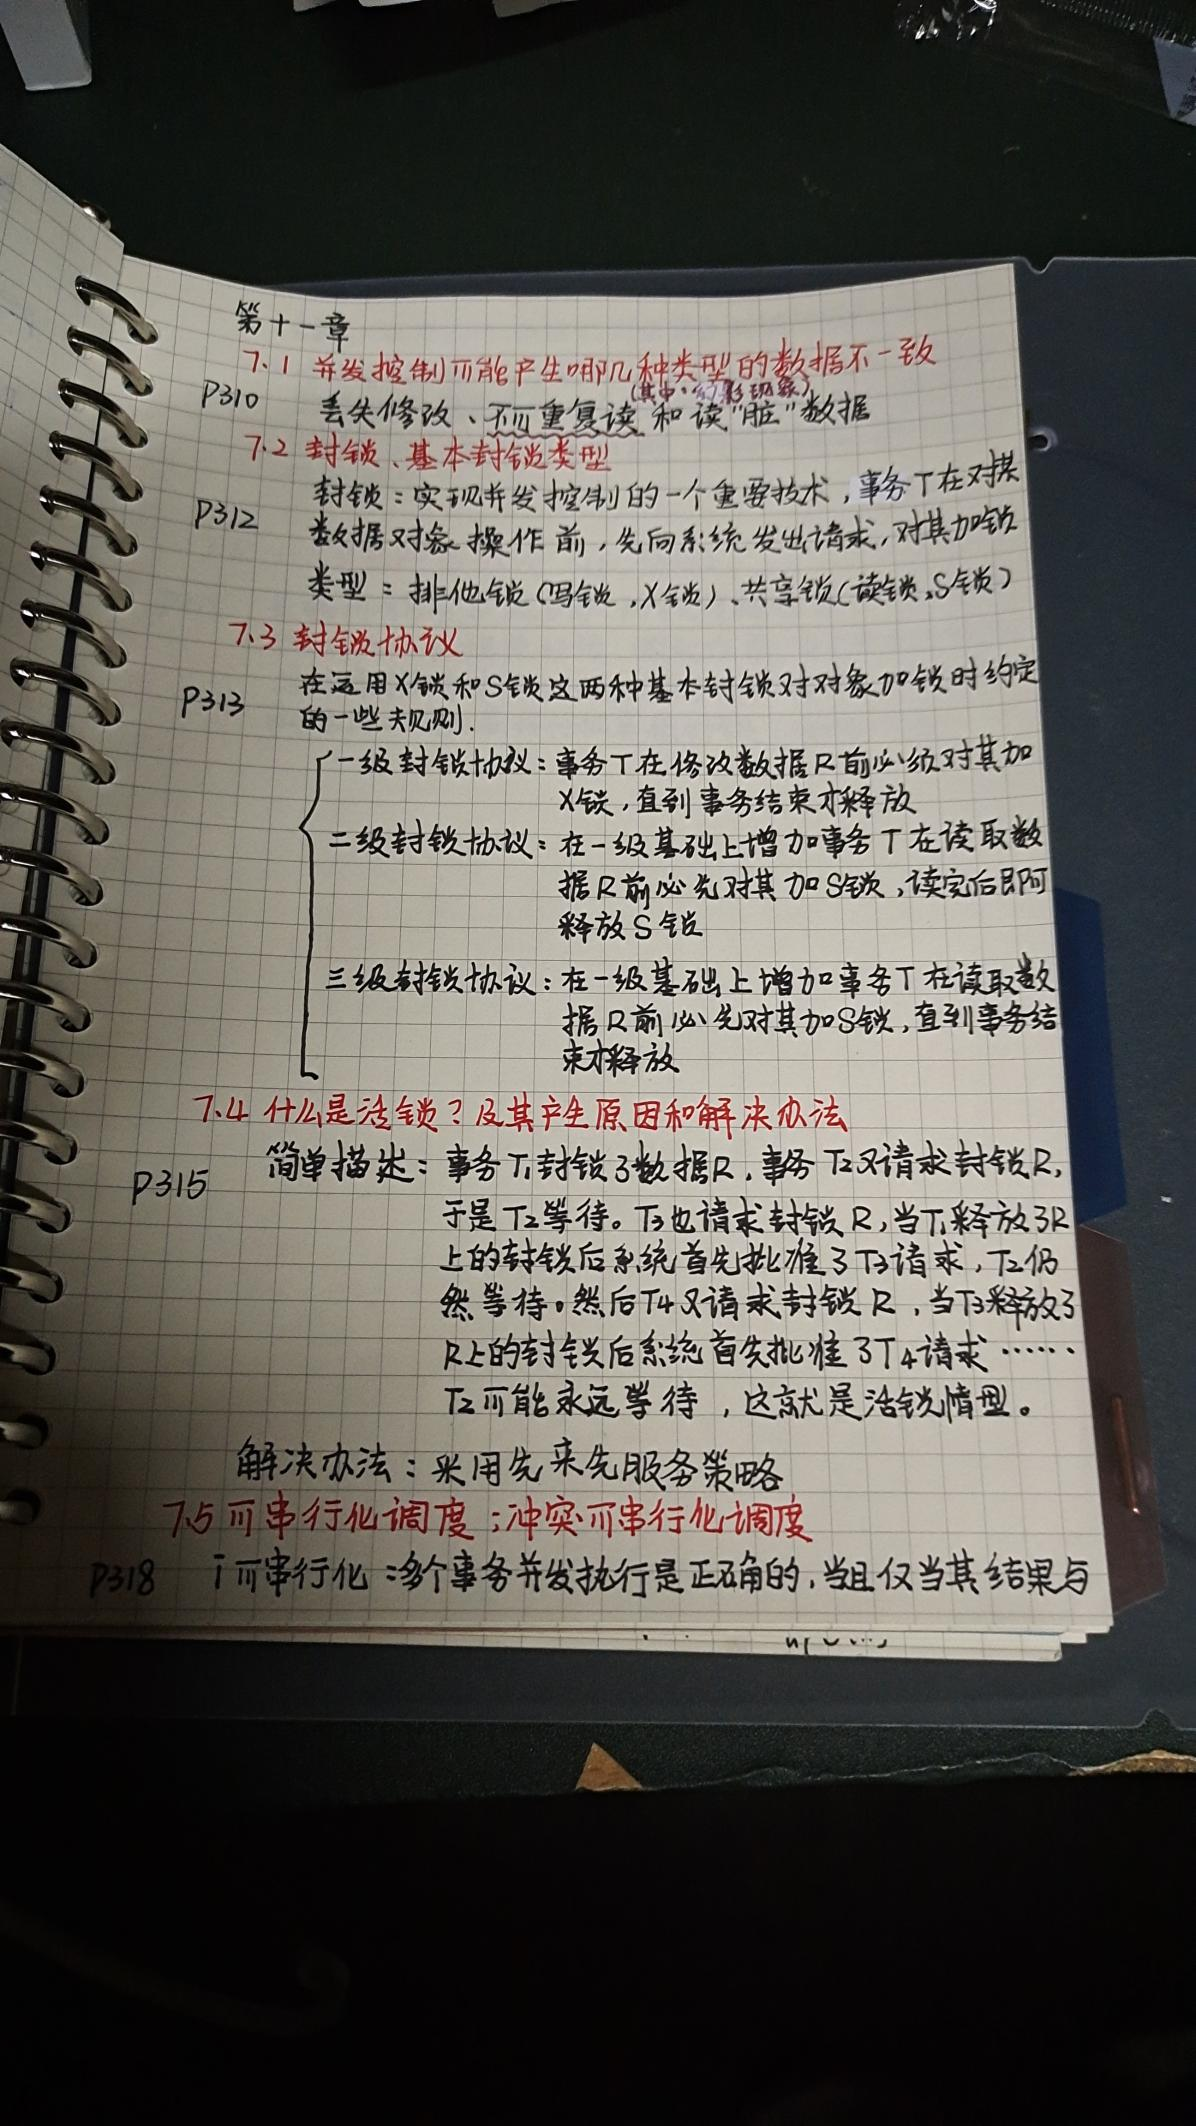 第十一章
7.1 并发控制可能产生哪几种类型的数据不一致
(其中:幻影现象)
P310 丢失修改、不可重复读和读"脏"数据
7.2 封锁、基本封锁类型
封锁:实现并发控制的一个重要技术,事务T在对某
P312 数据对象操作前,先向系统发出请求,对其加锁
类型:排他锁(写锁,X锁)、共享锁(读锁,S锁)
7.3 封锁协议
P313 在运用X锁和S锁这两种基本封锁对对象加锁时约定
的一些规则.
一级封锁协议:事务T在修改数据R前必须对其加
X锁,直到事务结束才释放
二级封锁协议:在一级基础上增加事务T在读取数
据R前必先对其加S锁,读完后即可
释放S锁
三级封锁协议:在一级基础上增加事务T在读取数
据R前必先对其加S锁,直到事务结
束才释放
7.4 什么是活锁?及其产生原因和解决办法
P315 简单描述:事务T1封锁了数据R,事务T2又请求封锁R,
于是T2等待。T3也请求封锁R,当T1释放了R
上的封锁后系统首先批准了T3请求,T2仍
然等待。然后T4又请求封锁R,当T3释放了
R上的封锁后系统首先批准了T4请求……
T2可能永远等待,这就是活锁情型。
解决办法:采用先来先服务策略
7.5 可串行化调度;冲突可串行化调度
P318 i 可串行化:多个事务并发执行是正确的,当且仅当其结果与